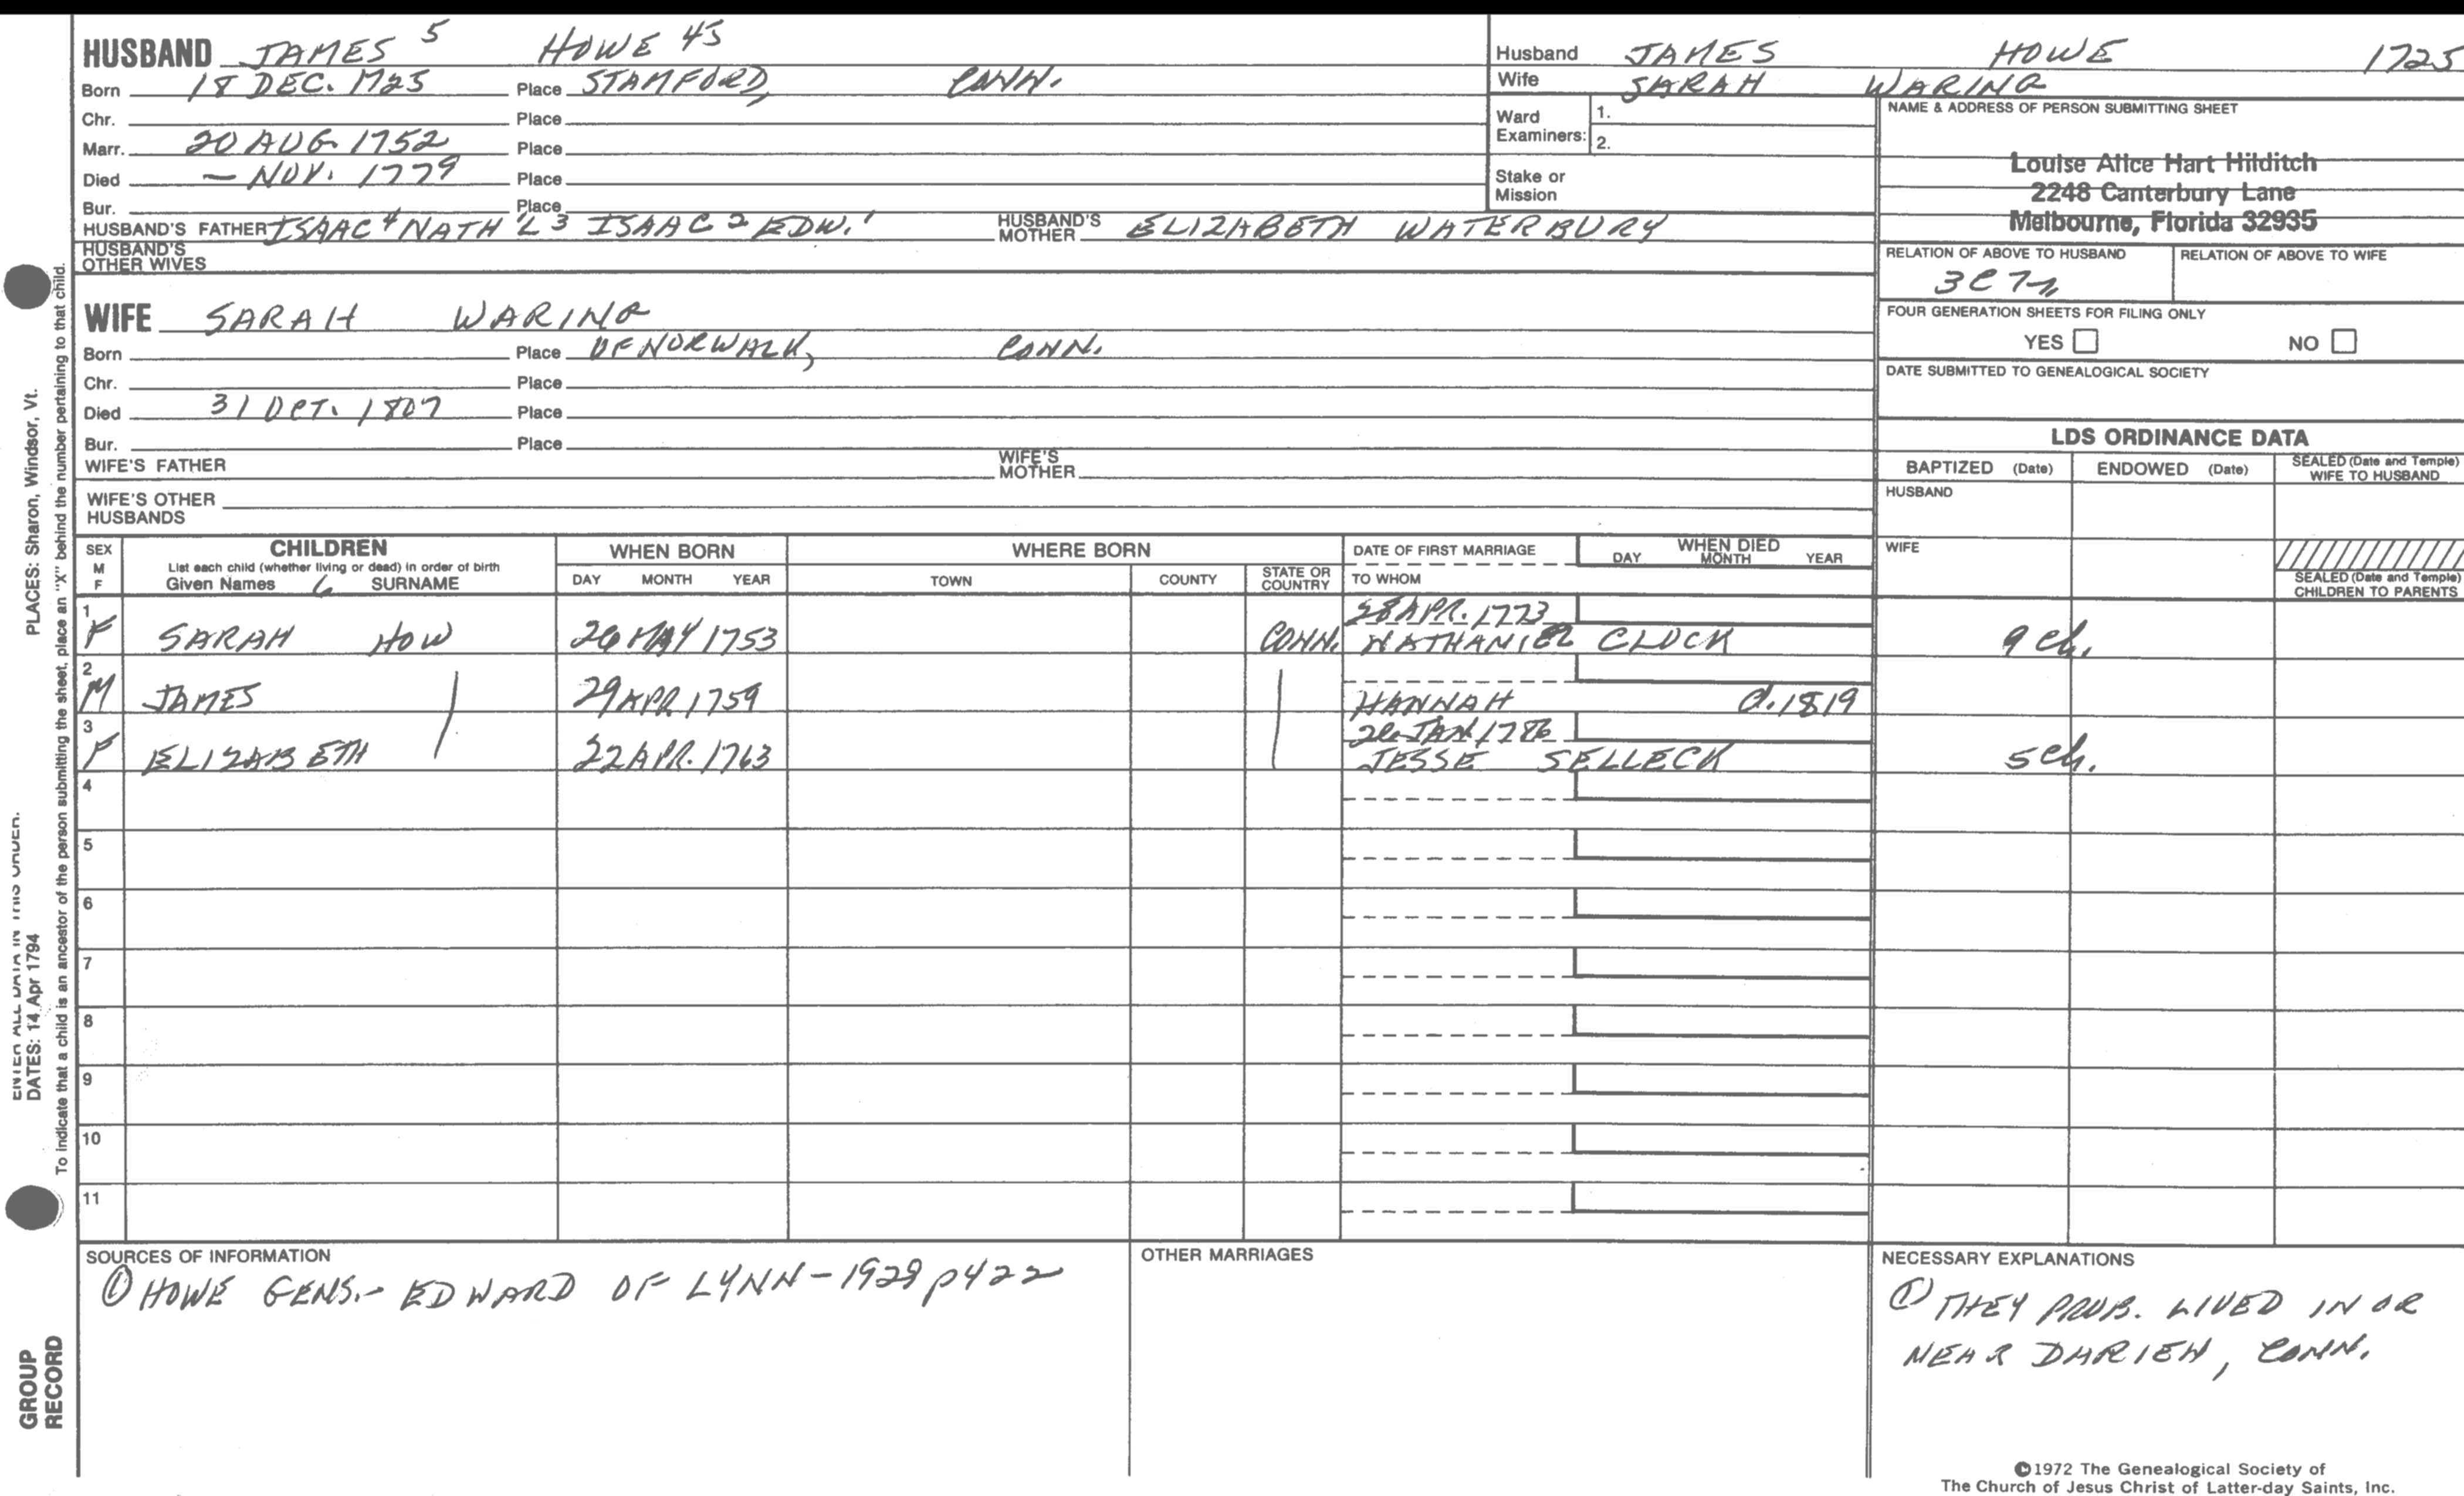 HUSBAND JAMES 5 HOWE 45
Born 18 DEC. 1725 Place STAMFORD, CONN.
Chr. Place
Marr. 20 AUG. 1752 Place
Died — NOV. 1779 Place
Bur. Place
HUSBAND'S FATHER ISAAC 4 NATH'L 3 ISAAC 2 EDW. 1 HUSBAND'S MOTHER ELIZABETH WATERBURY
HUSBAND'S OTHER WIVES
WIFE SARAH WARING
Born Place OF NORWALK, CONN.
Chr. Place
Died 31 OCT. 1807 Place
Bur. Place
WIFE'S FATHER WIFE'S MOTHER
WIFE'S OTHER HUSBANDS
Husband JAMES HOWE 1725
Wife SARAH WARING
Ward Examiners: 1.
2.
Stake or Mission
NAME & ADDRESS OF PERSON SUBMITTING SHEET
Louise Alice Hart Hilditch
2248 Canterbury Lane
Melbourne, Florida 32935
RELATION OF ABOVE TO HUSBAND RELATION OF ABOVE TO WIFE
3C7
FOUR GENERATION SHEETS FOR FILING ONLY
YES NO
DATE SUBMITTED TO GENEALOGICAL SOCIETY
LDS ORDINANCE DATA
BAPTIZED (Date) ENDOWED (Date) SEALED (Date and Temple) WIFE TO HUSBAND
HUSBAND
WIFE
SEALED (Date and Temple) CHILDREN TO PARENTS
SEX M F
CHILDREN
List each child (whether living or dead) in order of birth
Given Names SURNAME
WHEN BORN
DAY MONTH YEAR
WHERE BORN
TOWN COUNTY STATE OR COUNTRY
DATE OF FIRST MARRIAGE
TO WHOM
WHEN DIED
DAY MONTH YEAR
1 28 APR. 1773
F SARAH HOW 26 MAY 1753 CONN. NATHANIEL CLOCK 9 ch.
2
M JAMES 29 APR. 1759 HANNAH d. 1819
3 26 JAN 1786
F ELIZABETH 22 APR. 1763 JESSE SELLECK 5 ch.
4
5
6
7
8
9
10
11
SOURCES OF INFORMATION
① HOWE GENS. - EDWARD OF LYNN - 1929 p422
OTHER MARRIAGES
NECESSARY EXPLANATIONS
① THEY PROB. LIVED IN OR
NEAR DARIEN, CONN.
©1972 The Genealogical Society of
The Church of Jesus Christ of Latter-day Saints, Inc.
PLACES: Sharon, Windsor, Vt.
ENTER ALL DATA IN THIS ORDER.
DATES: 14 Apr 1794
To indicate that a child is an ancestor of the person submitting the sheet, place an "X" behind the number pertaining to that child.
GROUP
RECORD